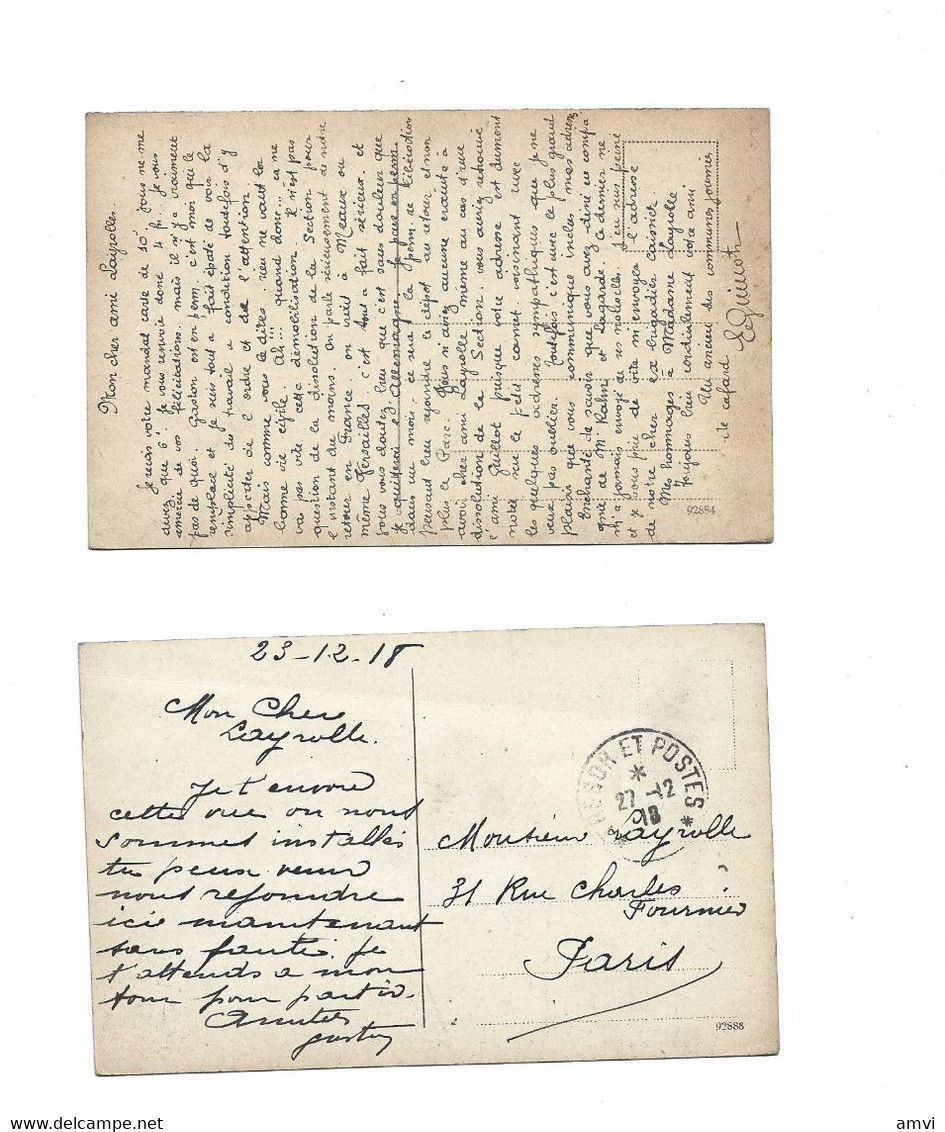 Mon cher ami Layrolles.
Je reçois votre mandat carte de 10f vous ne me
devez que 6f je vous renvoie donc 4 fr. je vous
remercie de vos félicitations. mais il n'y a vraiment
pas de quoi. Gaston est en perm. c'est moi qui le
remplace et je suis tout à fait épaté de voir la
simplicité du travail à condition toutefois d'y
apporter de l'ordre et de l'attention.
Mais comme vous le dites rien ne vaut la
bonne vie civile. Ah!!! quand donc... ça ne
va pas vite cette démobilisation. Il n'est pas
question de la dissolution de la Section pour
l'instant du moins. On parle sérieusement de notre
retour en France on irait à Meaux ou
même Versailles. c'est tout à fait sérieux. et
vous vous doutez bien que c'est sans douleur que
je quitterai l'Allemagne. Je pars en perm
dans un mois. ce sera la perm. de libération
pensant bien rejoindre le dépôt au retour et non
plus le Parc. Vous n'avez aucune crainte à
avoir cher ami Layrolle même au cas d'une
dissolution de la Section. vous auriez retrouvé
l'ami Guillot puisque votre adresse est dument
notée sur le petit carnet voisinant avec
les quelques adresses sympathiques que je ne
veux pas oublier. Toutefois c'est avec le plus grand
plaisir que je vous communique incluses mes adresses
Enchanté de savoir que vous avez diné en compa
gnie de Mr Kahn et Lagarde. Ce dernier ne
m'a jamais envoyé de ses nouvelles. J'en suis peiné
et je vous prie de vite m'envoyer l'adresse
de notre cher ex brigadier Caissier
Mes hommages à Madame Layrolle
Toujours bien cordialement votre ami
Un ancien des communes journées
de cafard
92884
23-12-18
Mon Cher
Layrolle.
Je t'envoie
cette vue ou nous
sommes installés
tu peux venir
nous rejoindre
ici maintenant
sans faute. Je
t'attends a mon
tour pour partir.
Amitiés
Gaston
TRESOR ET POSTES
27 -12
18
Monsieur Layrolle
31 Rue Charles
Fournier
Paris
92888
amvi